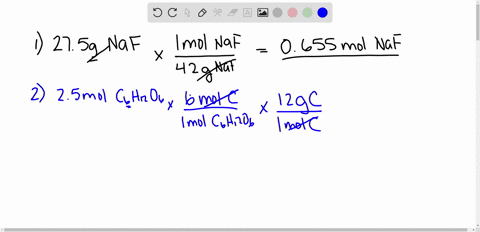 1) 27.5g NaF × 1mol NaF / 42g NaF = 0.655 mol NaF
2) 2.5mol C6H12O6 × 6 mol C / 1mol C6H12O6 × 12gC / 1molC